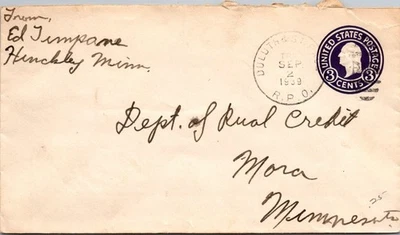 From,
Ed Timpane
Hinckley Minn.
DULUTH
SEP
2
1939
R.P.O.
UNITED STATES POSTAGE
3 CENTS 3
Dept. of Rual Credit
Mora
Minnesota